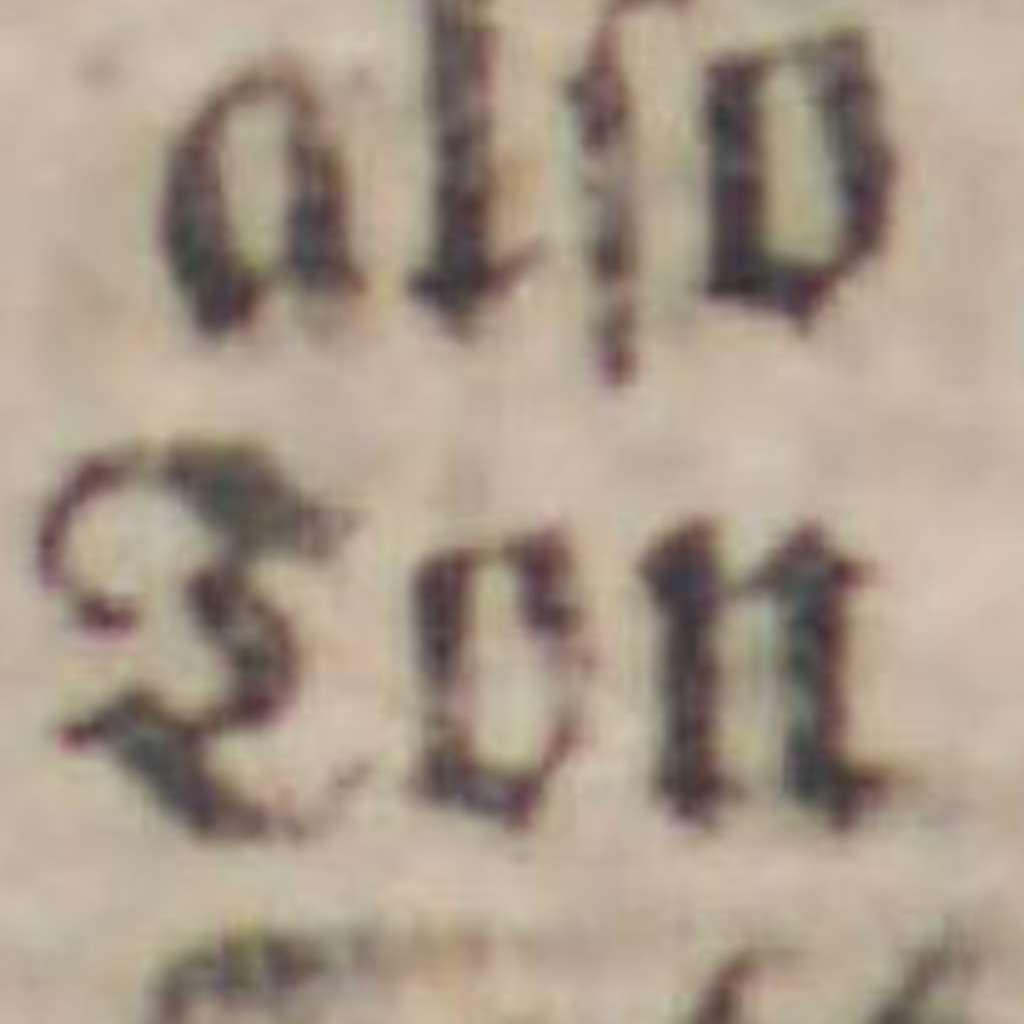 alſo
Ton